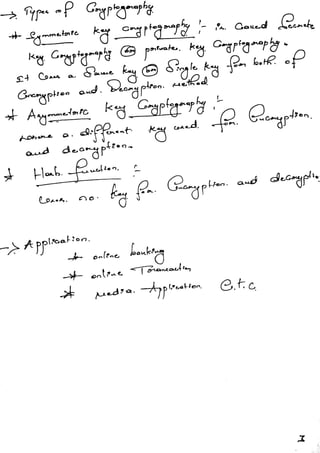 -> Types of Cryptography.
* Symmetric key cryptography :- is Called Secrete
key Cryptography (or) private key Cryptography.
It Uses a Same key (or) Single key for both of
Encryption and Decryption. method
* Asymmetric key Cryptography :-
where a different key used for Encryption.
and decryption.
* Hash function. :-
Uses no key for Encryption and decryptio
-> Application.
* online banking
* online Transaction
* Media. Application e.t.c.